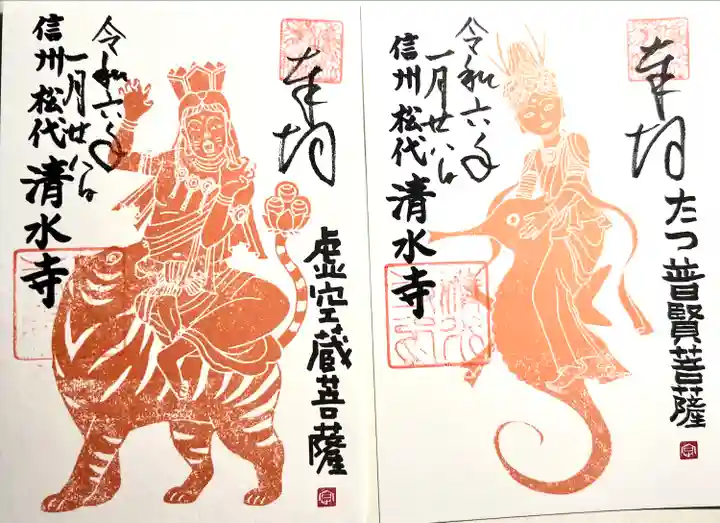 奉拝
虚空蔵菩薩
令和六年
一月廿八日
信州松代 清水寺
奉拝
たつ普賢菩薩
令和六年
一月廿八日
信州松代 清水寺